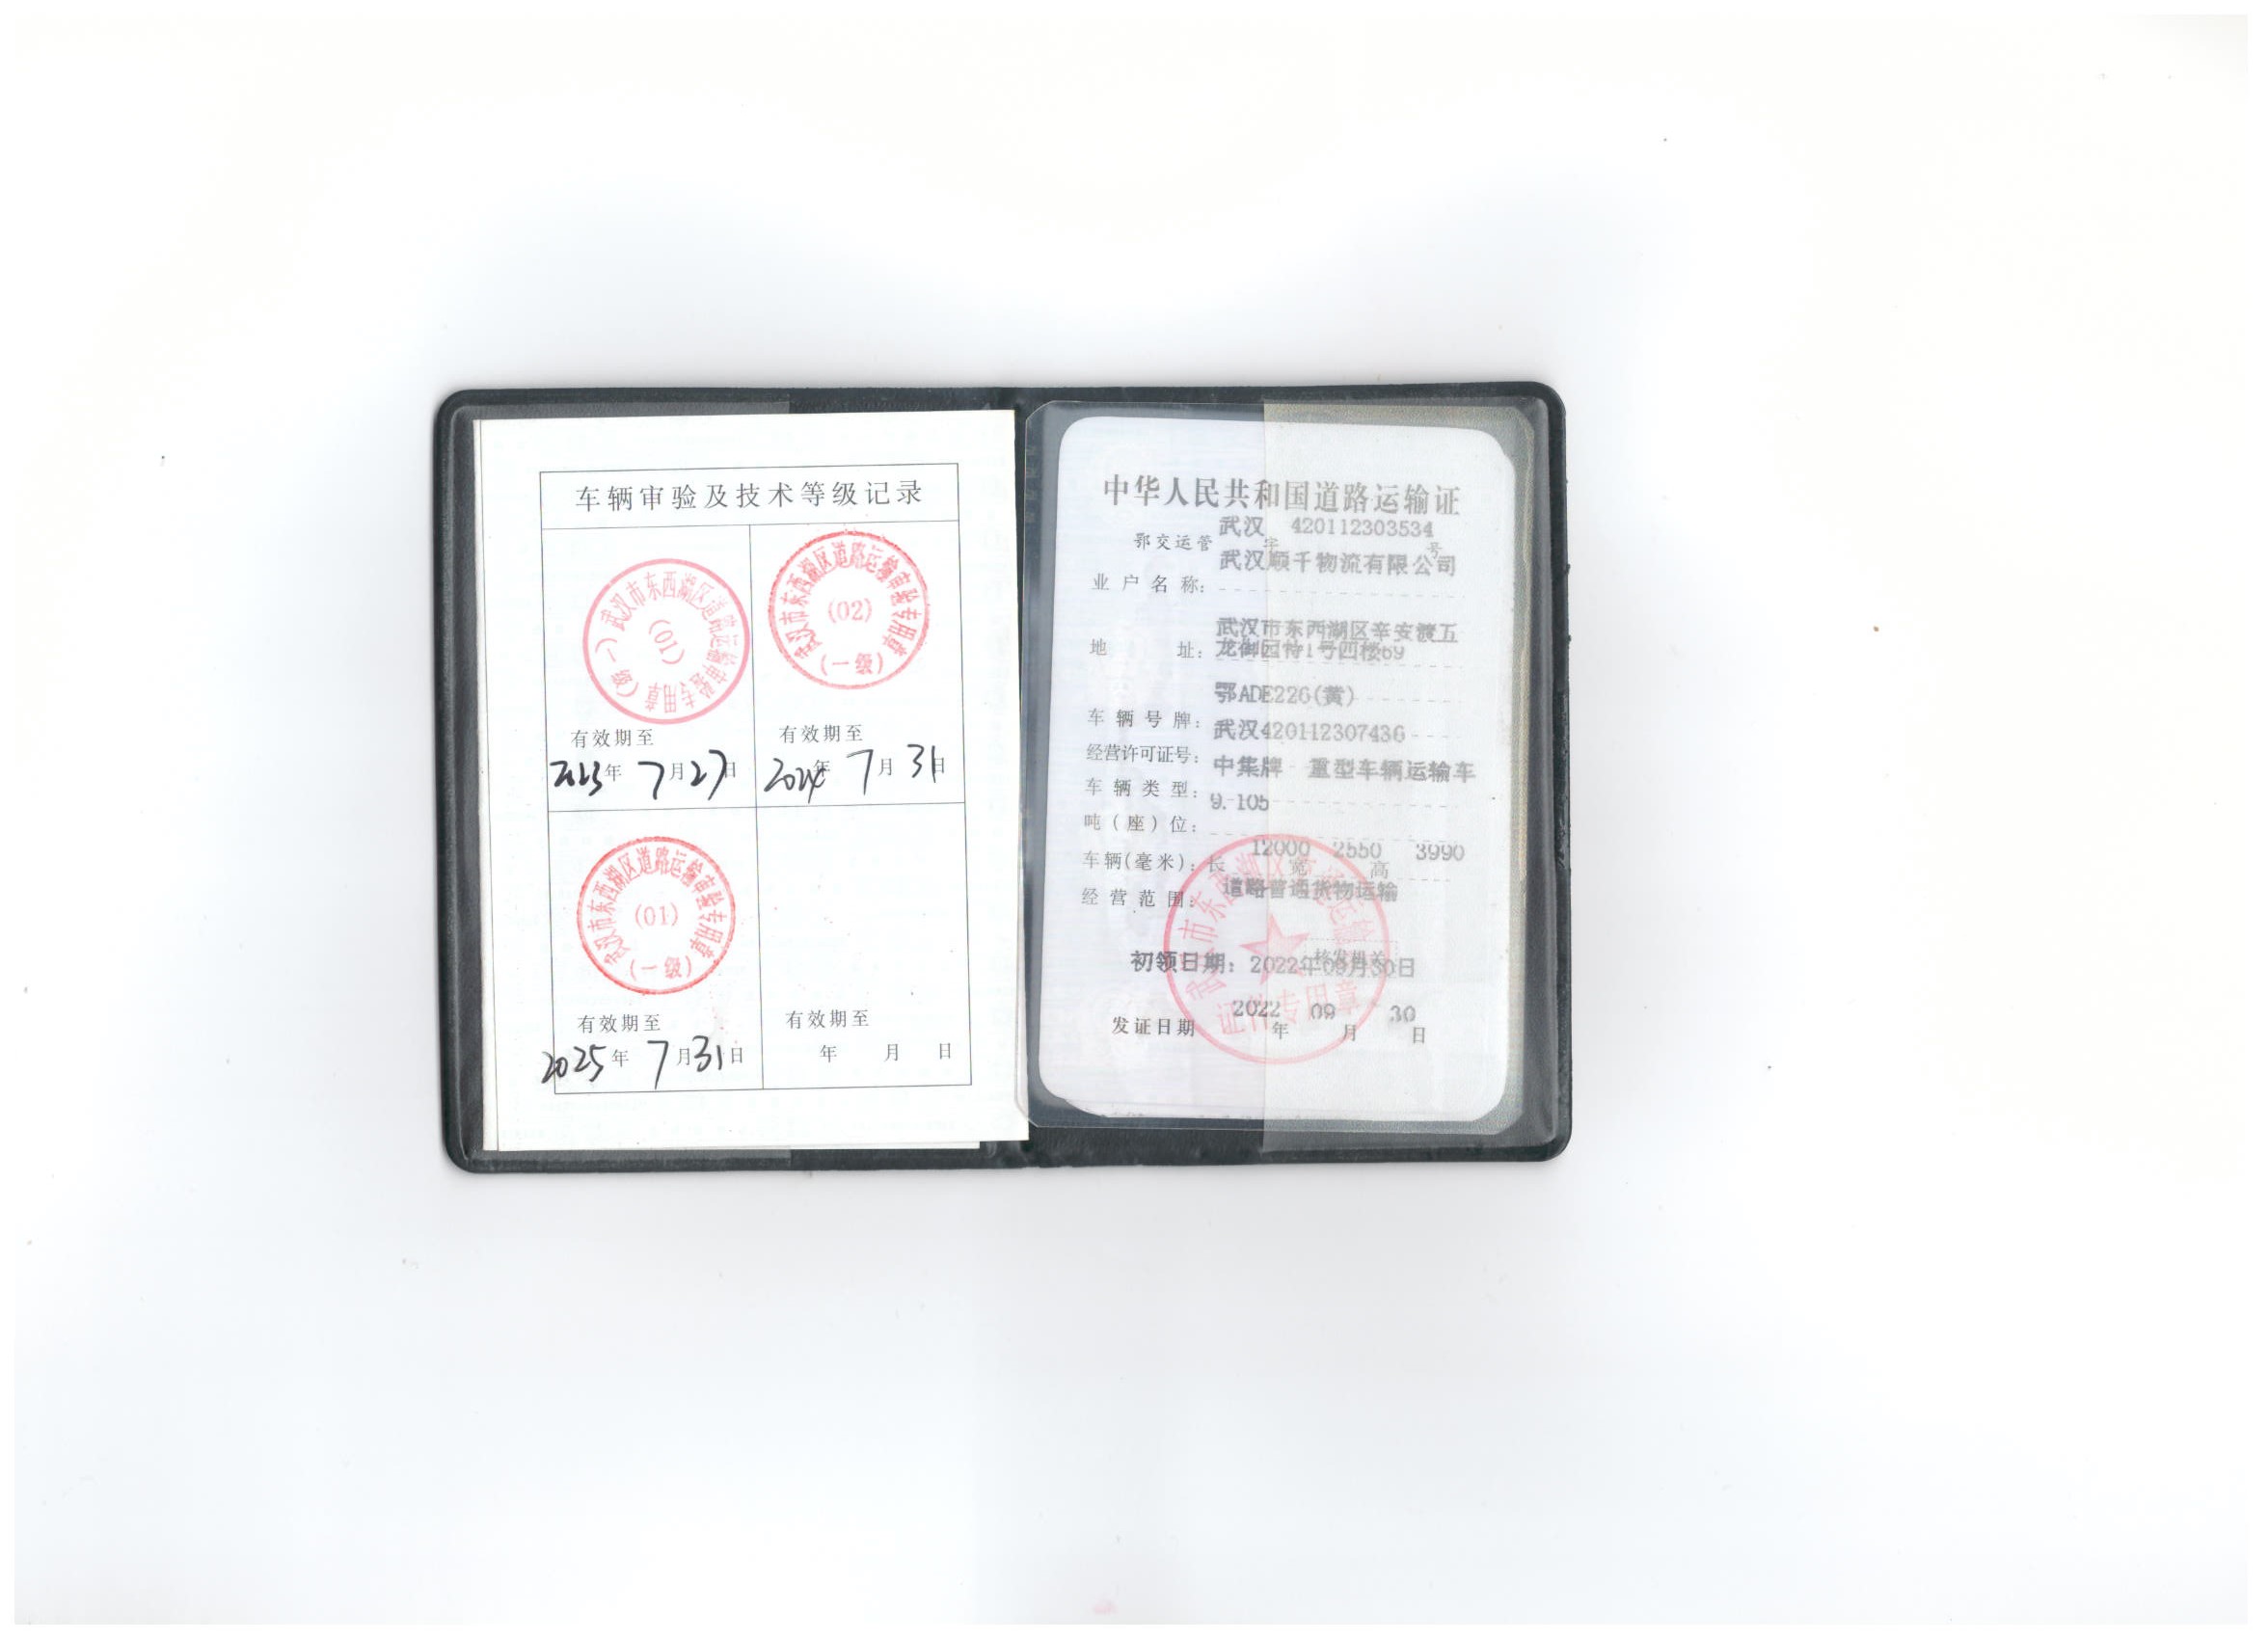 车辆审验及技术等级记录
武汉市东西湖区道路运输审验专用章
(01)
(一级)
有效期至
2023年 7月27日
武汉市东西湖区道路运输审验专用章
(02)
(一级)
有效期至
2024年 7月31日
武汉市东西湖区道路运输审验专用章
(01)
(一级)
有效期至
2025年 7月31日
有效期至
年 月 日
中华人民共和国道路运输证
鄂交运管 武汉 字 420112303534 号
业户名称: 武汉顺千物流有限公司
地 址: 武汉市东西湖区辛安渡五
龙御园特1号四楼69
车辆号牌: 鄂ADE226(黄)
经营许可证号: 武汉420112307436
车辆类型: 中集牌 重型车辆运输车
吨(座)位: 9.105
车辆(毫米): 长 12000 宽 2550 高 3990
经营范围: 道路普通货物运输
核发机关
初领日期: 2022年09月30日
发证日期 2022年 09月 30日
证件专用章